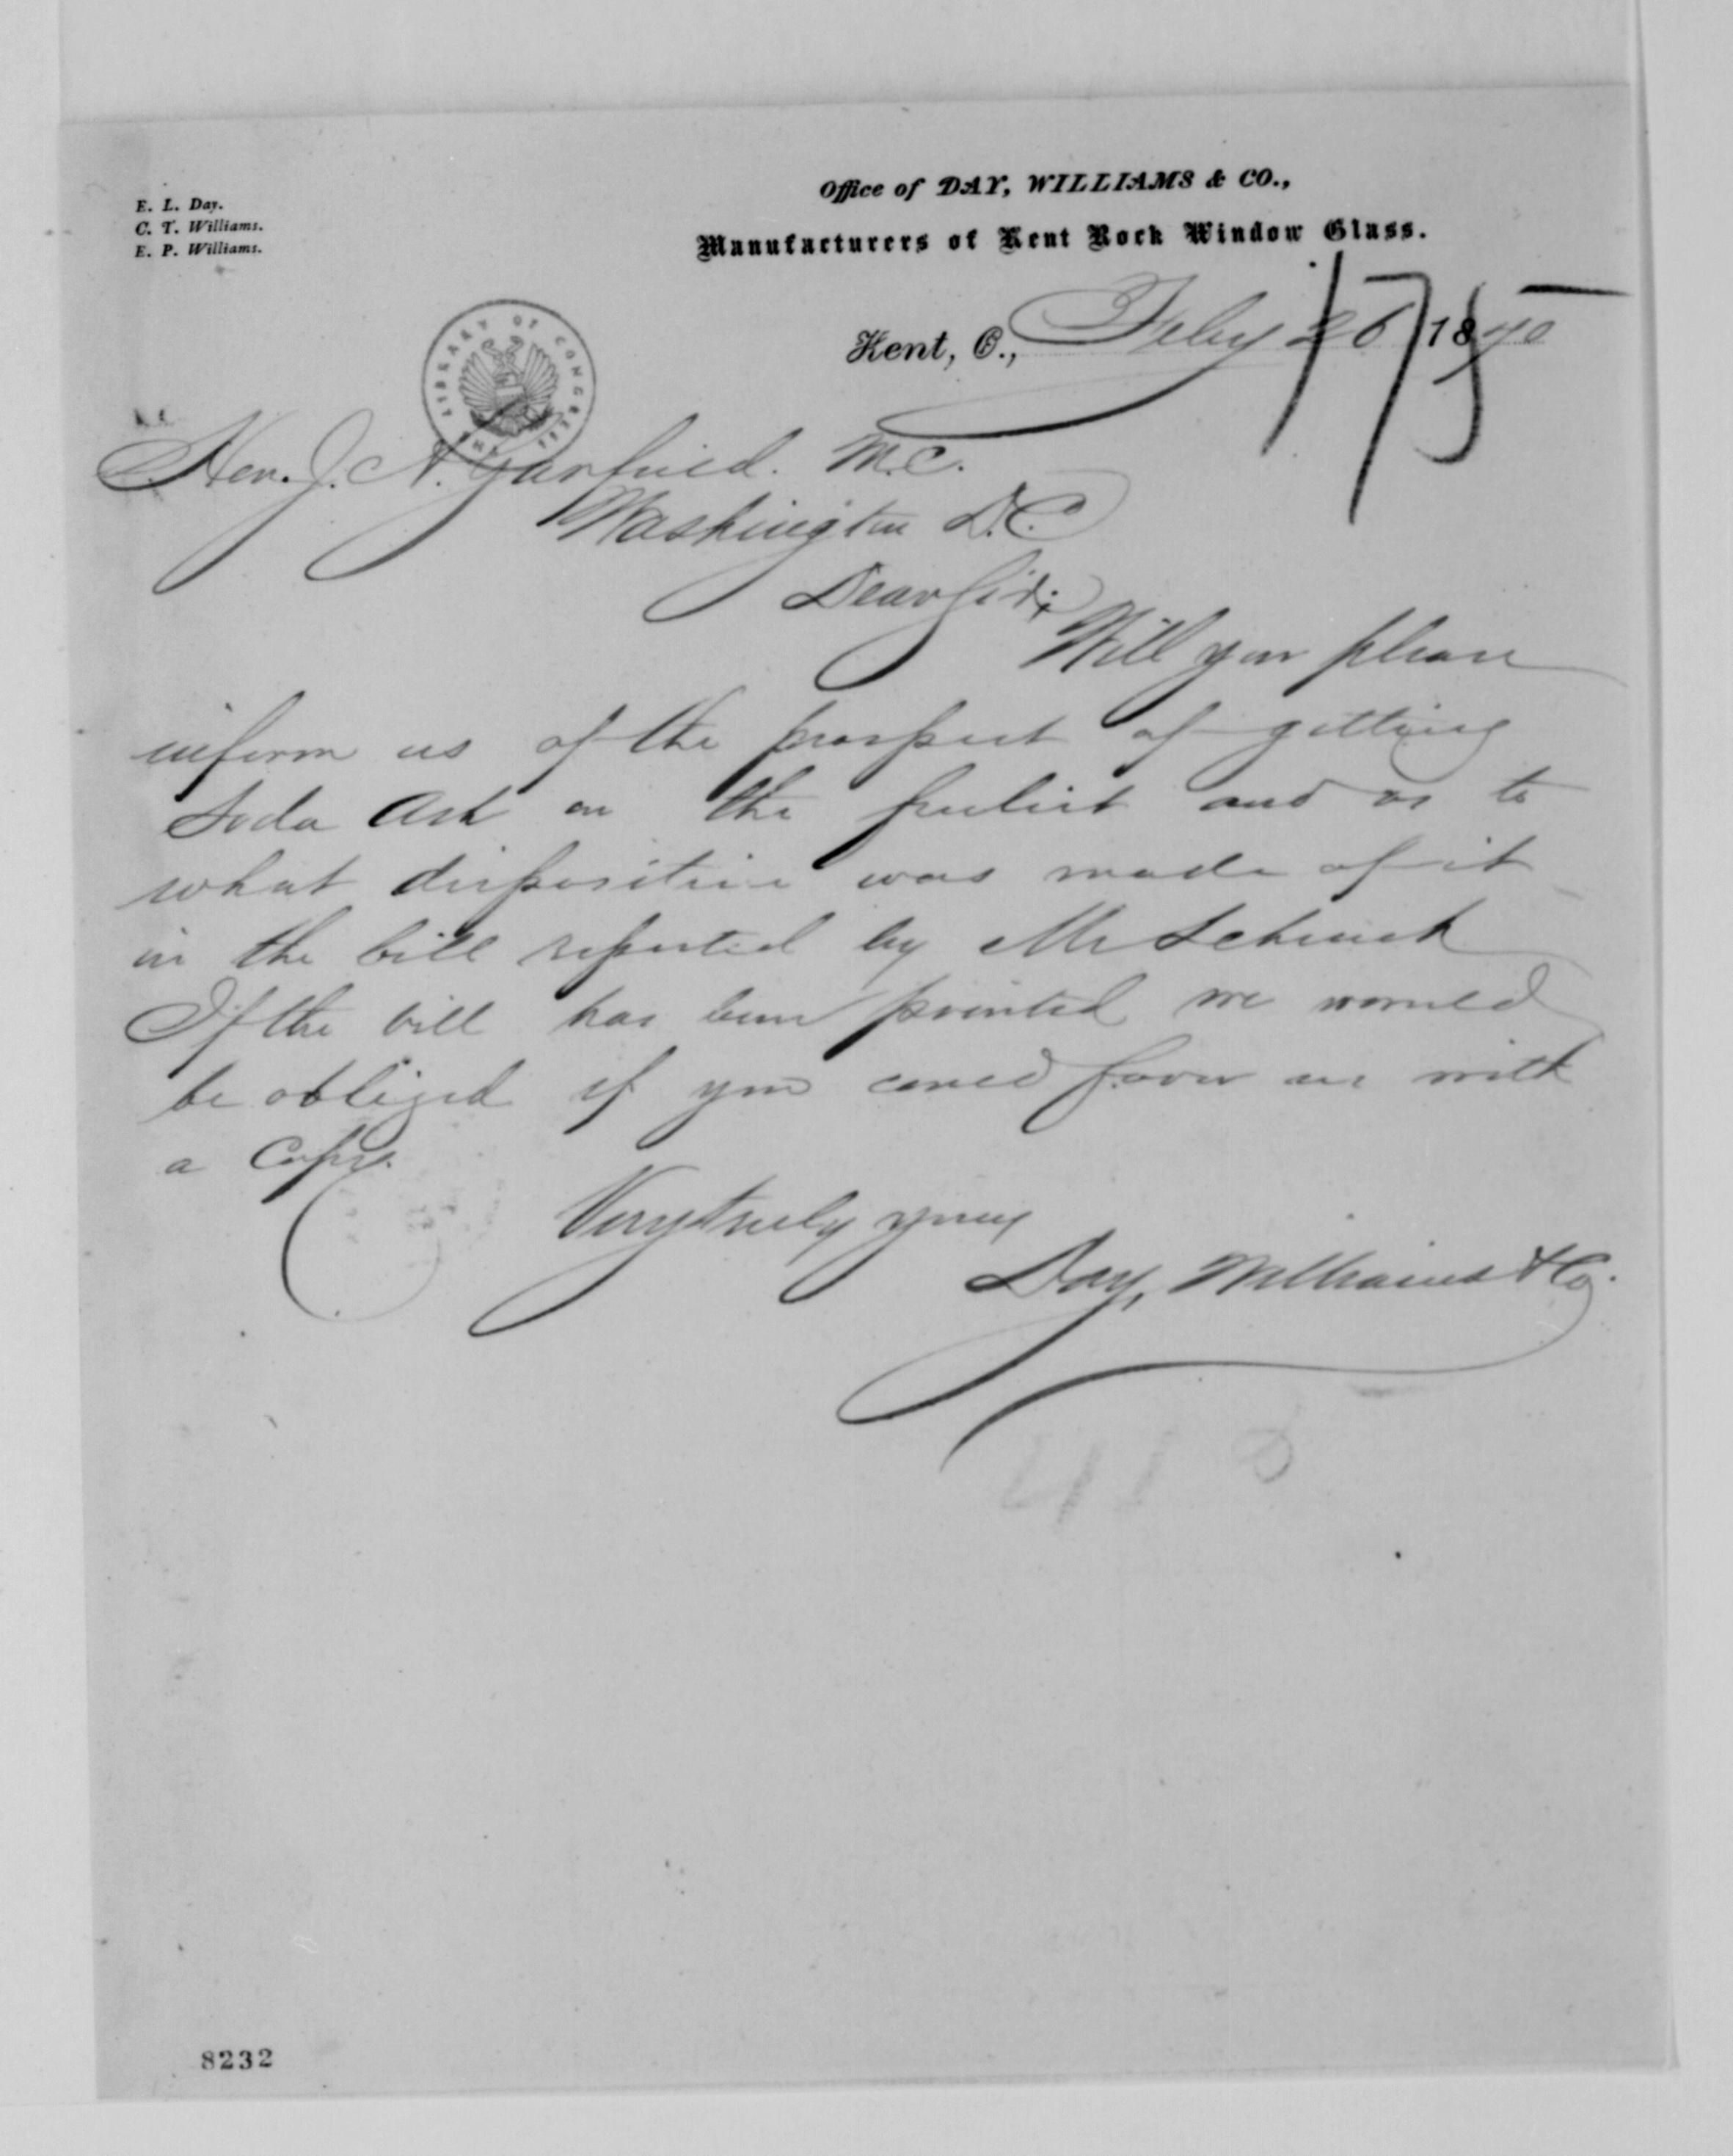 E. L. Day.
C. T. Williams.
E. P. Williams.
Office of DAY, WILLIAMS & CO.,
Manufacturers of Kent Rock Window Glass.
Kent, O., Feby 26 1870
175
LIBRARY OF CONGRESS
Hon. J. A. Garfield. M.C.
Washington D.C.
Dear Sir;
Will you please
inform us of the prospect of getting
Soda Ash on the free list and as to
what disposition was made of it
in the bill reported by Mr Schenck
If the bill has been printed we would
be obliged if you could favor us with
a Copy.
Very truly yours
Day, Williams & Co.
8232